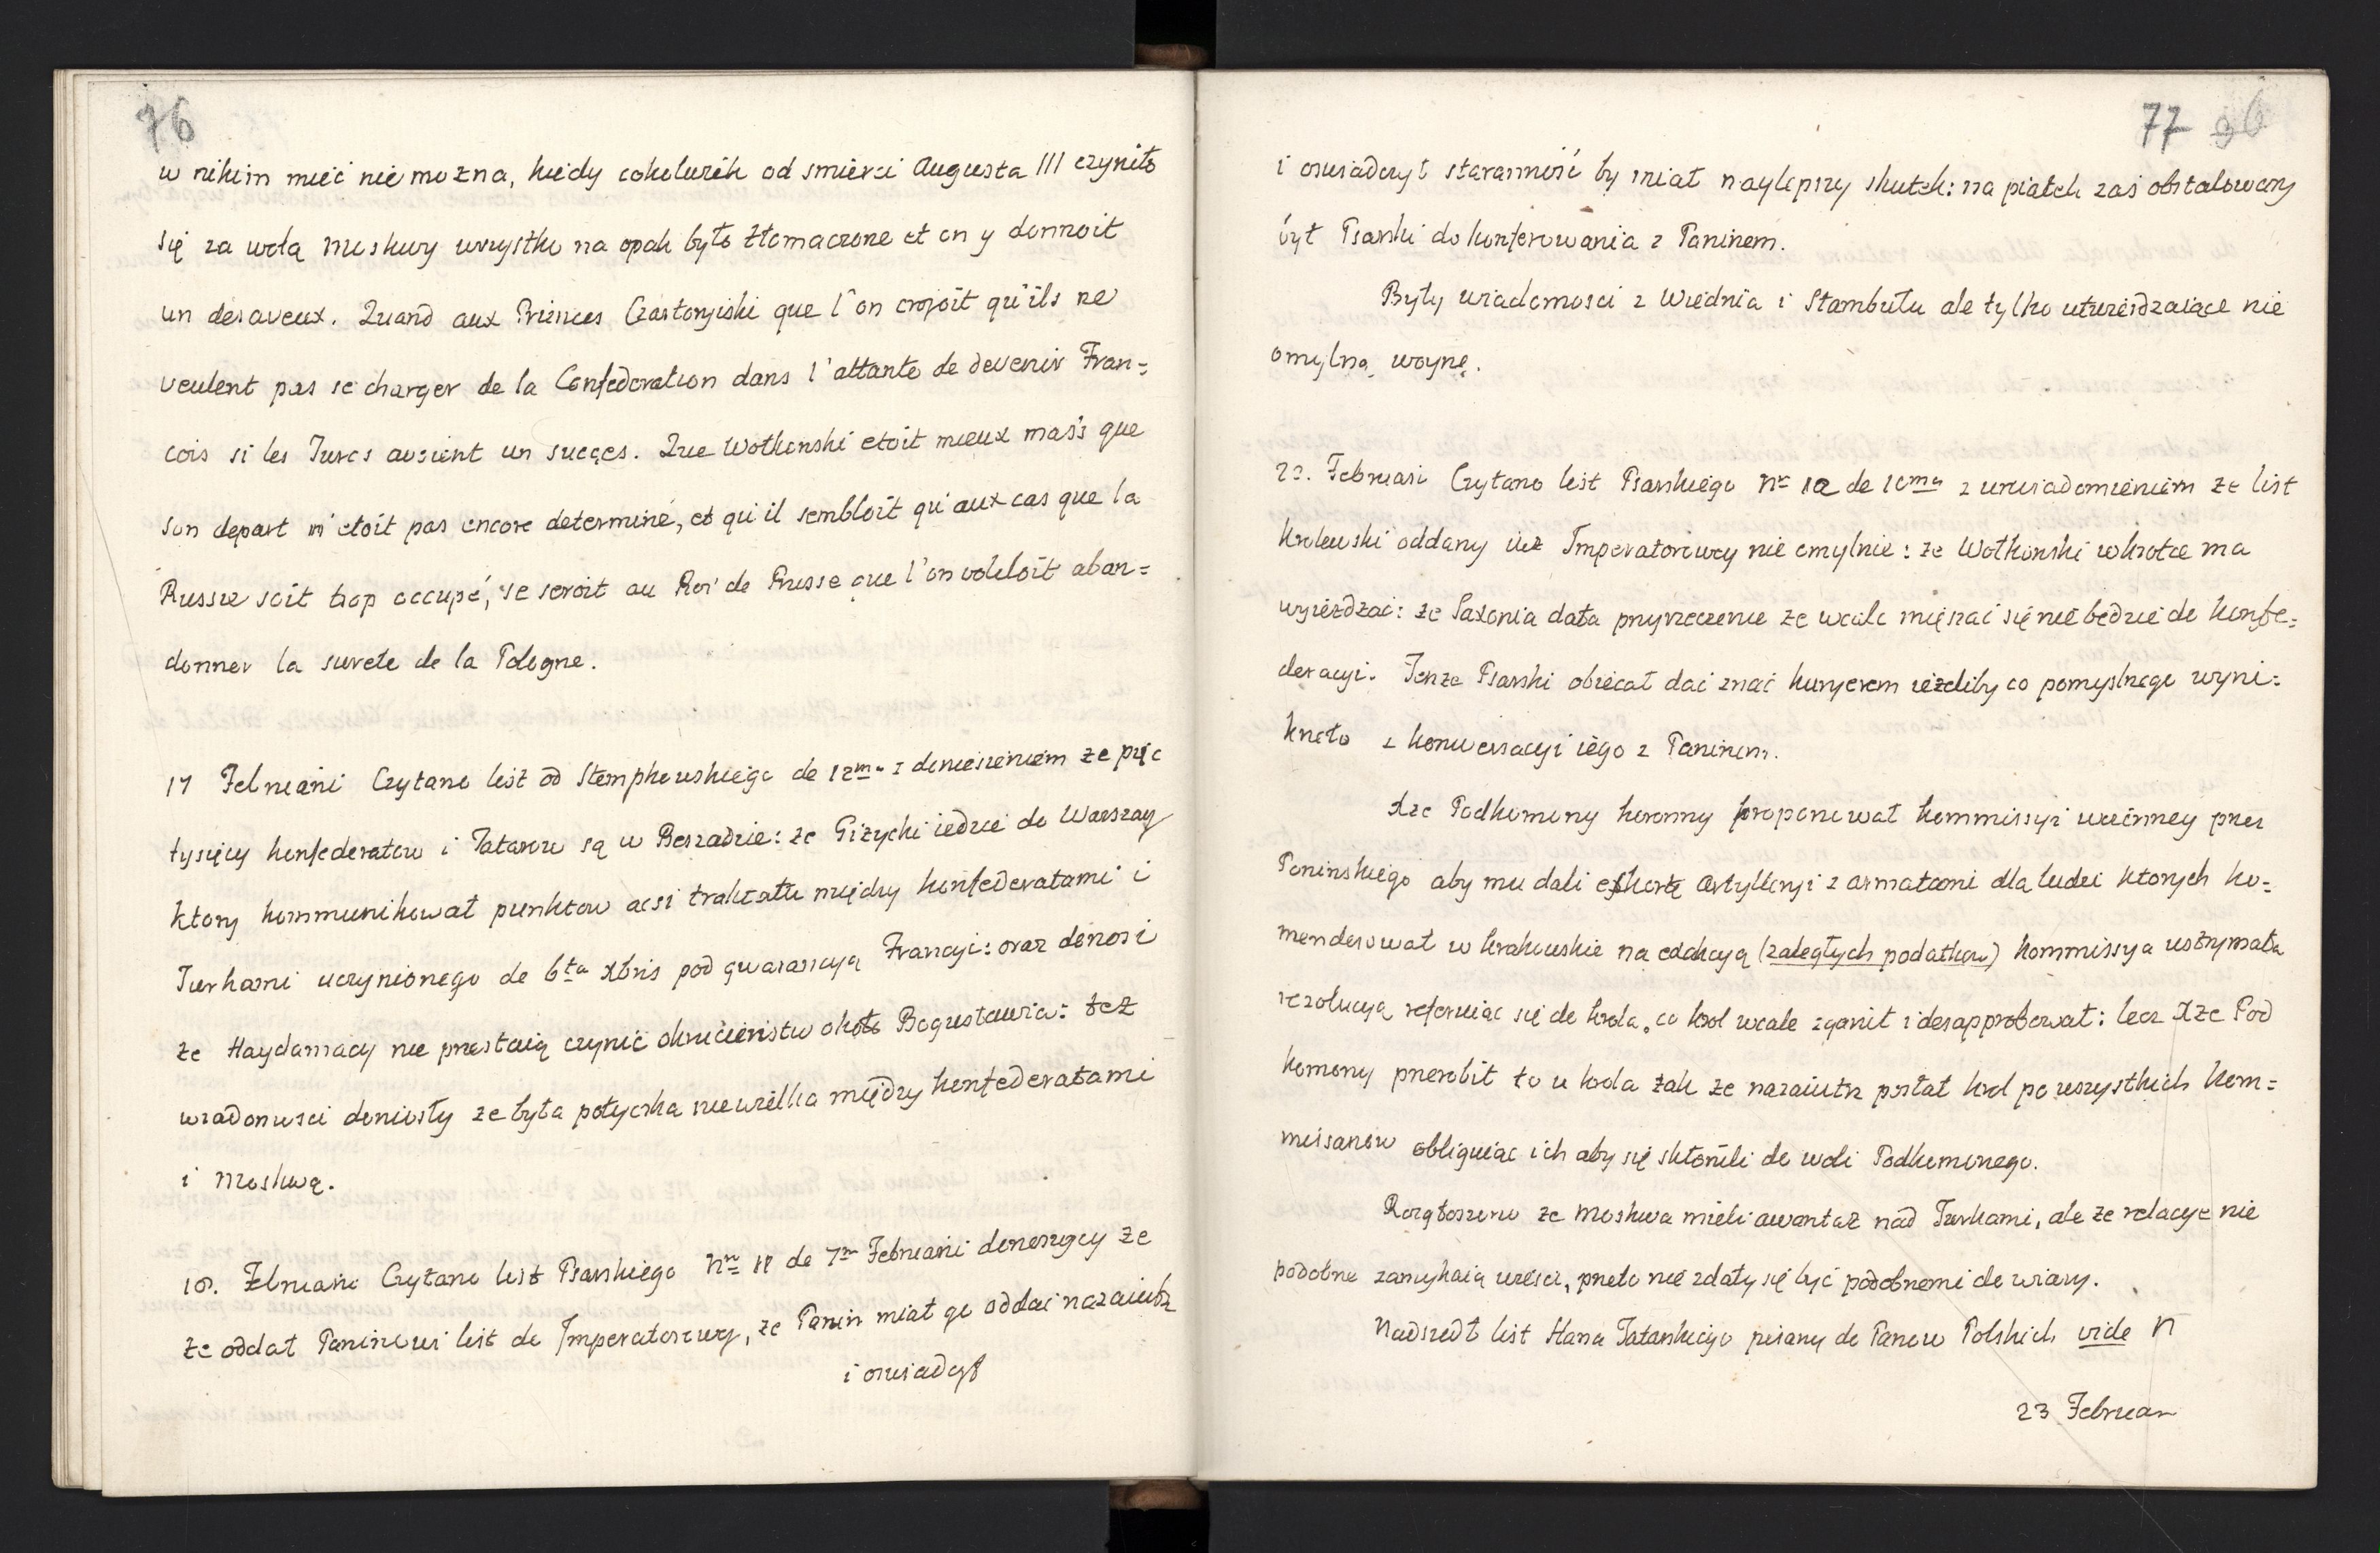 76
w nikim mieć nie można, kiedy cokolwiek od smierci Augusta III czyniło
się za wolą Moskwy wszystko na opak było tłomaczone et on y donnoit
un desaveux. Quand aux Princes Czartoryiski que l'on crojoit qu'ils ne
veulent pas se charger de la Confederation dans l'attante de devenir Fran=
cois si les Turcs avoient un sucçes. Que Wołkonski etoit mieux mais que
son depart n'etoit pas encore determiné, et qu'il sembloit qu'aux cas que la
Russie soit trop occupé, se seroit au Roi de Prusse que l'on voloit aban=
donner la surete de la Pologne.
17 Februarii Czytano list od Stempkowskiego de 12ma z doniesieniem ze pięc
tysięcy konfederatow i Tatarow są w Beszadzie: ze Giżycki iedzie do Warszay
ktory kommunikował punktow acsi traktatu między konfederatami i
Turkami uczynionego de 6ta Xbris pod gwarancyą Francyi: oraz donosi
że Haydamacy nie przestaią czynić okrucieństw około Bogusławia: też
wiadomosci doniosły ze była potyczka niewielka między konfederatami
i Moskwą.
18. Februarii Czytano list Psarskiego Nro 11 de 7ma Februarii donoszący że
że oddał Paninowi list do Imperatorowy, ze Panin miał go oddać nazaiutrz
i oswiadczył
77 36
i oswiadczył staranność by miał naylepszy skutek: na piątek zaś obstalowany
był Psarski do konferowania z Paninem.
Były wiadomosci z Wiednia i Stambułu ale tylko utwierdzaiące nie
omylną woynę.
22. Februari Czytano list Psarskiego Nr 12 de 10ma z uwiadomieniem że list
krolewski oddany iuż Imperatorowey nie omylnie: że Wołkonski wkrotce ma
wyieżdzać: że Saxonia dała przyrzeczenie że wcale mięszać się nie będzie do konfe=
deracyi. Tenże Psarski obiecał dać znać kuryerem ieżeliby co pomyslnego wyni=
kneło z konwersacyi iego z Paninem.
Xże Podkomony koronny proponował kommissyi woienney przez
Poninskiego aby mu dali eskortę Artylleryi z armatami dla ludzi ktorych ko=
menderował w krakowskie na exakcyą (zaległych podatkow) kommissya wstrzymała
rezolucyą referuiąc się do krola, co krol wcale zganił i desapprobował: lecz Xże Pod
komony przerobił to u krola tak ze nazaiutrz posłał krol po wszystkich kom=
missarzow obliguiąc ich aby się skłonili do woli Podkomonego.
Rozgłoszono ze Moskwa mieli awantaż nad Turkami, ale ze relacye nie
podobne zamykaią wiesci, przeto nie zdały się być podobnemi do wiary.
Nadszedł list Hana Tatarskiego pisany do Panow Polskich vide N
23 Februar